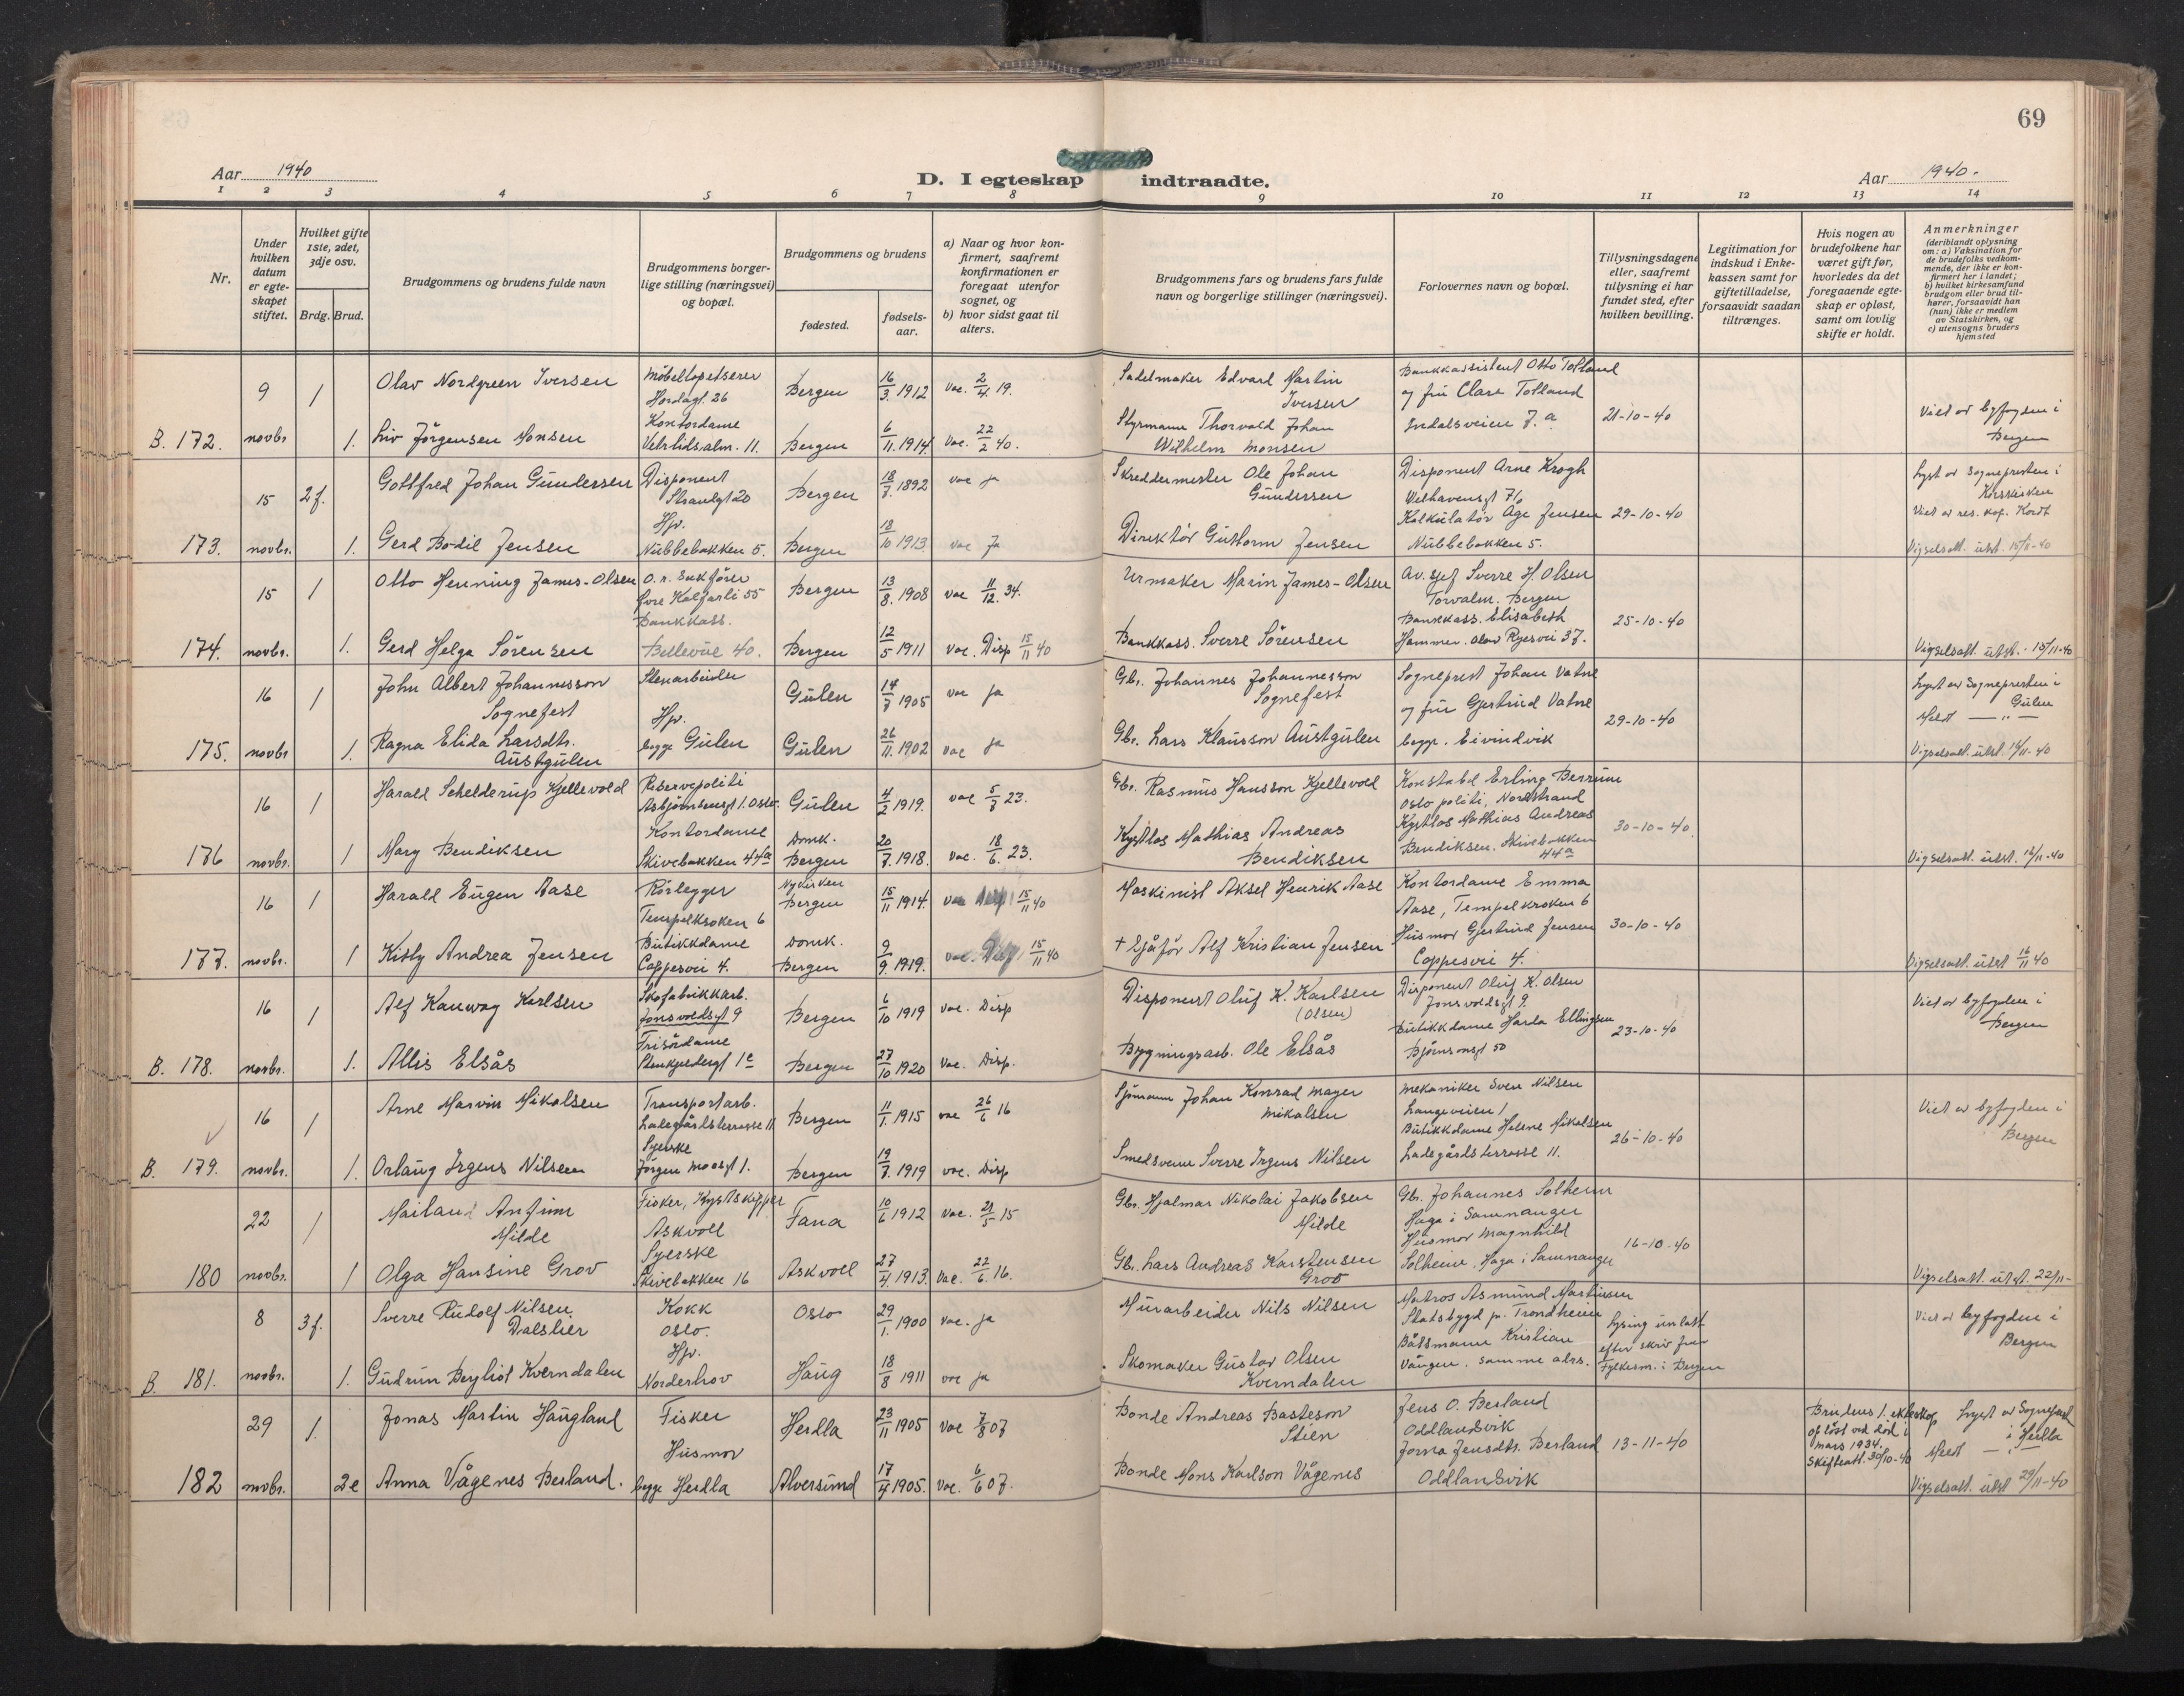 69
Aar 1940
D. I egteskap indtraadte.
Aar 1940.
1 2 3 4 5 6 7 8 9 10 11 12 13 14
Nr.
Under hvilken datum er egteskapet stiftet.
Hvilket gifte 1ste, 2det, 3dje osv.
Brdg. Brud.
Brudgommens og brudens fulde navn
Brudgommens borgerlige stilling (næringsvei) og bopæl.
Brudgommens og brudens
fødested.
fødselsaar.
a) Naar og hvor konfirmert, saafremt konfirmationen er foregaat utenfor sognet, og
b) hvor sidst gaat til alters.
Brudgommens fars og brudens fars fulde navn og borgerlige stillinger (næringsvei).
Forlovernes navn og bopæl.
Tillysningsdagene eller, saafremt tillysning ei har fundet sted, efter hvilken bevilling.
Legitimation for indskud i Enkekassen samt for giftetilladelse, forsaavidt saadan tiltrænges.
Hvis nogen av brudefolkene har været gift før, hvorledes da det foregaaende egteskap er opløst, samt om lovlig skifte er holdt.
Anmerkninger
(deriblandt oplysning om: a) Vaksination for de brudefolks vedkommende, der ikke er konfirmert her i landet; b) hvilket kirkesamfund brudgom eller brud tilhører, forsaavidt han (hun) ikke er medlem av Statskirken, og c) utensogns bruders hjemsted
9 1 Olav Nordgreen Iversen Møbeltapetserer Hordagt. 26 Bergen 16/3 1912 vac. 2/4 19. Sadelmaker Edvard Martin Iversen Bankkassistent Otto Tolland og fru Clara Tolland
B. 172. novbr 1. Liv Jörgensen Monsen Kontordame Vetrlidsalm. 11. Bergen 6/11 1914 vac. 22/2 40. Styrmann Thorvald Johan Wilhelm Monsen Indalsveien 7.a 21-10-40 Viet av byfogden i Bergen
15 2f. Gottfred Johan Gundersen Disponent Strandgt 20 Bergen 18/7. 1892 vac ja Skreddermester Ole Johan Gundersen Disponent Arne Krogh Welhavensgt 76 Lyst av Sognepresten i Korskirken
173. novbr. 1. Gerd Bodil Jensen Hjv. Nubbebakken 5. Bergen 18/10 1913 vac Ja Direktør Guttorm Jensen Kalkulatør Åge Jensen Nubbebakken 5. 29-10-40 Viet av res. kap. Kordt Vigselsatt. utst. 15/11-40
15 1 Otto Henning James-Olsen O.r. Sakfører Øvre Kalfarli 55 Bergen 13/8. 1908 vac 11/12. 34. Urmaker Marin James-Olsen Av. sjef Sverre H. Olsen Torvalm. Bergen
174. novbr. 1. Gerd Helga Sörensen Bankkass. Bellevue 40. Bergen 12/5 1911 vac. Disp 15/11 40 Bankkass. Sverre Sörensen Bankkass. Elisabeth Hammer. Olav Ryesvei 37. 25-10-40 Vigselsatt. utst. 15/11-40
16 1 John Albert Johannesson Sognefest Gulen 14/7 1905 vac ja Gbr. Johannes Johannesson Sognefest Sogneprest Johan Vatne og fru Gjertrud Vatne Lyst av Sognepresten i Gulen
175. novbr 1. Ragna Elida Larsdtr. Austgulen Hjv. begge Gulen Gulen 26/11. 1902 vac ja Gbr. Lars Klausson Austgulen begge. Eivindvik 29-10-40 Meldt — " — Vigselsatt. utst. 16/11-40
16 1 Harald Schelderup Kjellevold Reservepoliti Asbjørnsensgt 1. Oslo. Gulen 4/2 1919. vac 5/8 23. Gbr. Rasmus Hansson Kjellevold Konstabel Erling Berrum Oslo politi, Nordstrand
176 novbr. 1 Mary Bendiksen Kontordame Skivebakken 44a Domk. Bergen 20/7. 1918. vac. 18/6. 23. Kystlos Mathias Andreas Bendiksen Kystlos Mathias Andreas Bendiksen. Skivebakken 44a 30-10-40. Vigselsatt. utst. 16/11-40
16 1 Harald Eugen Aase Rørlegger Tempelkroken 6 Nykirken Bergen 15/11 1914. vac 15/11 40 Maskinist Aksel Henrik Aase Kontordame Emma Aase, Tempelkroken 6
177. novbr. 1 Kitty Andrea Jensen Butikkdame Coppesvei 4. Domk. Bergen 9/9. 1919. vac. Disp 15/11 40 + Sjåfør Alf Kristian Jensen Husmor Gjertrud Jensen Coppesvei 4. 30-10-40 Vigselsatt. utst 16/11 40
16 1 Alf Kanway Karlsen Skofabrikkarb. Jonsvoldsgt 9 Bergen 6/10 1919 vac. Disp Disponent Oluf K. Karlsen (Olsen) Disponent Oluf K. Olsen Jonsvoldsgt 9. Viet av byfogden i Bergen
B. 178. novbr. 1. Allis Elsås Frisördame Stenkjeldergt 1c Bergen 27/10 1920 vac. Disp. Bygningsarb. Ole Elsås Butikkdame Harda Ellingsen Bjørnsonsgt 50 23-10-40
16 1 Arne Marvin Mikalsen Transportarb. Ladegårdsterrasse 11 Bergen 11/1. 1915 vac 26/6 16 Sjømann Johan Konrad Mayer Mikalsen Mekaniker Sven Nilsen Langeveien 1 Viet av byfogden i Bergen
B 179. novbr. 1. Orlaug Irgens Nilsen Syerske Jörgen Moesgt 1. Bergen 19/7. 1919 vac. Disp Smedsvenn Sverre Irgens Nilsen Butikkdame Helene Mikalsen Ladegårdsterrasse 11. 26-10-40
22 1 Mailand Anfinn Milde Fisker, Kystskipper Askvoll Fana 10/6 1912 vac. 21/5 15 Gbr. Hjalmar Nikolai Jakobsen Milde Gbr. Johannes Solheim Haga i Samnanger
180 novbr. 1 Olga Hansine Grov Syerske Skivebakken 16 Askvoll 27/4. 1913. vac. 22/6. 16. Gb. Lars Andreas Karstensen Grov Husmor Magnhild Solheim, Haga i Samnanger 16-10-40 Vigselsatt. utst. 22/11-
8 3f. Sverre Rudolf Nilsen Dalslier Kokk Oslo. Oslo 29/1. 1900 vac. ja Murarbeider Nils Nilsen Matros Asmund Martinsen Statsbygd pr. Trondheim Lysing unlatt efter skriv fra Fylkesm. i Bergen Viet av byfogden i Bergen
B. 181. novbr. 1. Gudrun Bergliot Kverndalen Hjv. Norderhov Haug 18/8 1911 vac ja Skomaker Gustav Olsen Kverndalen Båtsmann Kristian Vången. samme adrs.
29 1. Jonas Martin Haugland Fisker Herdla 23/11 1905 vac 7/8 07 Bonde Andreas Basteson Stien Jens O. Berland Oddlandsvik Brudens 1. ekteskap opløst ved död i mars 1934. Skifteatt. 30/10-40 Lyst av Sogneprest i Herdla
182 novbr. 2e Anna Vågenes Berland. Husmor begge Herdla Alversund 17/4 1905. vac. 6/6 07. Bonde Mons Karlson Vågenes Jorna Jensdtr. Berland Oddlandsvik 13-11-40 Meldt — " — Vigselsatt. utst 29/11-40